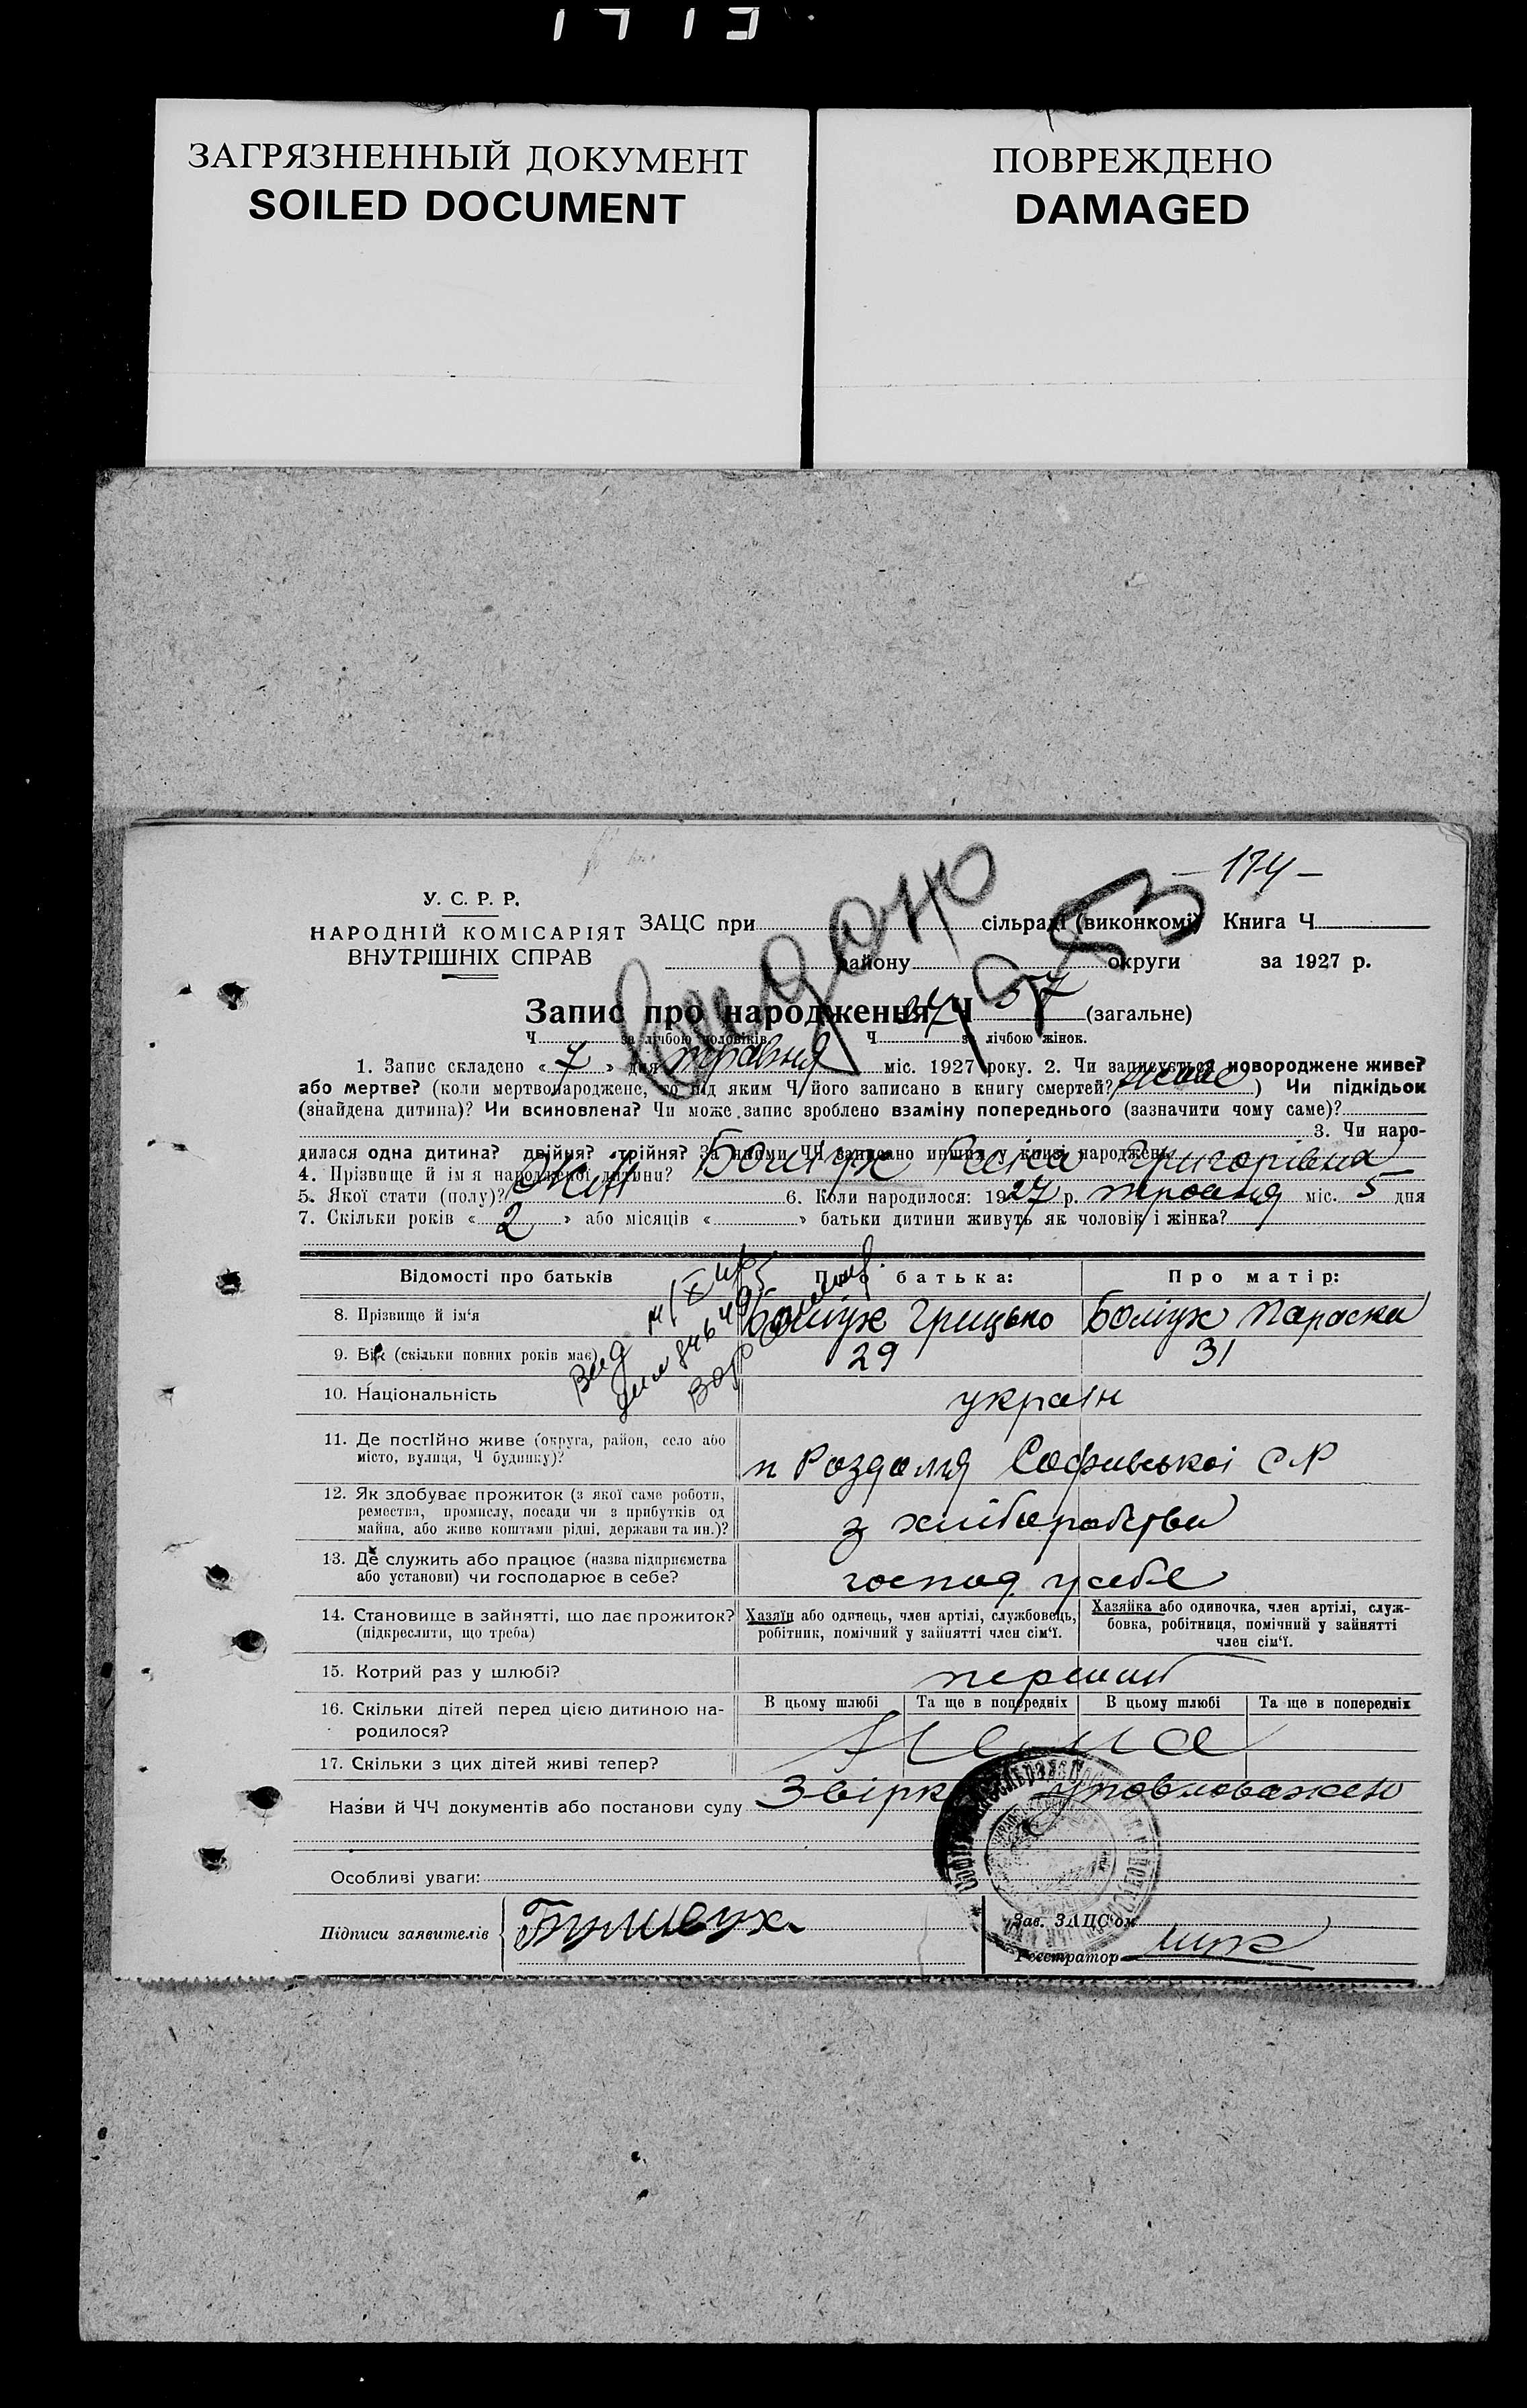 1713
ЗАГРЯЗНЕННЫЙ ДОКУМЕНТ
SOILED DOCUMENT
ПОВРЕЖДЕНО
DAMAGED
- 174 -
У. С. Р. Р.
НАРОДНІЙ КОМІСАРІЯТ
ВНУТРІШНІХ СПРАВ
ЗАЦС при сільраді (виконкомі) Книга Ч
району округи за 1927 р.
Запис про народження Ч 57 (загальне)
Ч за лічбою чоловіків Ч за лічбою жінок.
1. Запис складено « 7 » дня травня міс. 1927 року. 2. Чи записується новороджене живе?
або мертве? (коли мертвонароджене, то під яким Ч його записано в книгу смертей? живе) Чи підкідьок
(знайдена дитина)? Чи всиновлена? Чи може запис зроблено взаміну попереднього (зазначити чому саме)?
3. Чи наро-
дилася одна дитина? двійня? трійня? За якими ЧЧ записано инших у книзі народжень
4. Прізвище й ім я народженої дитини? Григорівна
5. Якої стати (полу)? 6. Коли народилося: 1927 р. травня міс. 5 дня
7. Скільки років « 2 » або місяців « » батьки дитини живуть як чоловік і жінка?
Відомості про батьків
Про батька:
Про матір:
8. Прізвище й ім'я Грицько Параска
9. Вік (скільки повних років має) 29 31
10. Національність україн
11. Де постійно живе (округа, район, село або
місто, вулиця, Ч будинку)? Софиевської
12. Як здобуває прожиток (з якої саме роботи,
ремества, промислу, посади чи з прибутків од
майна, або живе коштами рідні, держави та ин.)? з хліборобства
13. Де служить або працює (назва підприємства
або установи) чи господарює в себе? господ у себе
14. Становище в зайнятті, що дає прожиток?
(підкреслити, що треба)
Хазяїн або одинець, член артілі, службовець,
робітник, помічний у зайнятті член сім'ї.
Хазяйка або одиночка, член артілі, служ-
бовка, робітниця, помічний у зайнятті
член сім'ї.
15. Котрий раз у шлюбі? перший
16. Скільки дітей перед цією дитиною на-
родилося?
В цьому шлюбі Та ще в попередніх В цьому шлюбі Та ще в попередніх
Нема
17. Скільки з цих дітей живі тепер?
Назви й ЧЧ документів або постанови суду
Особливі уваги:
Підписи заявителів
Зав. ЗАЦС'ом
Реєстратор